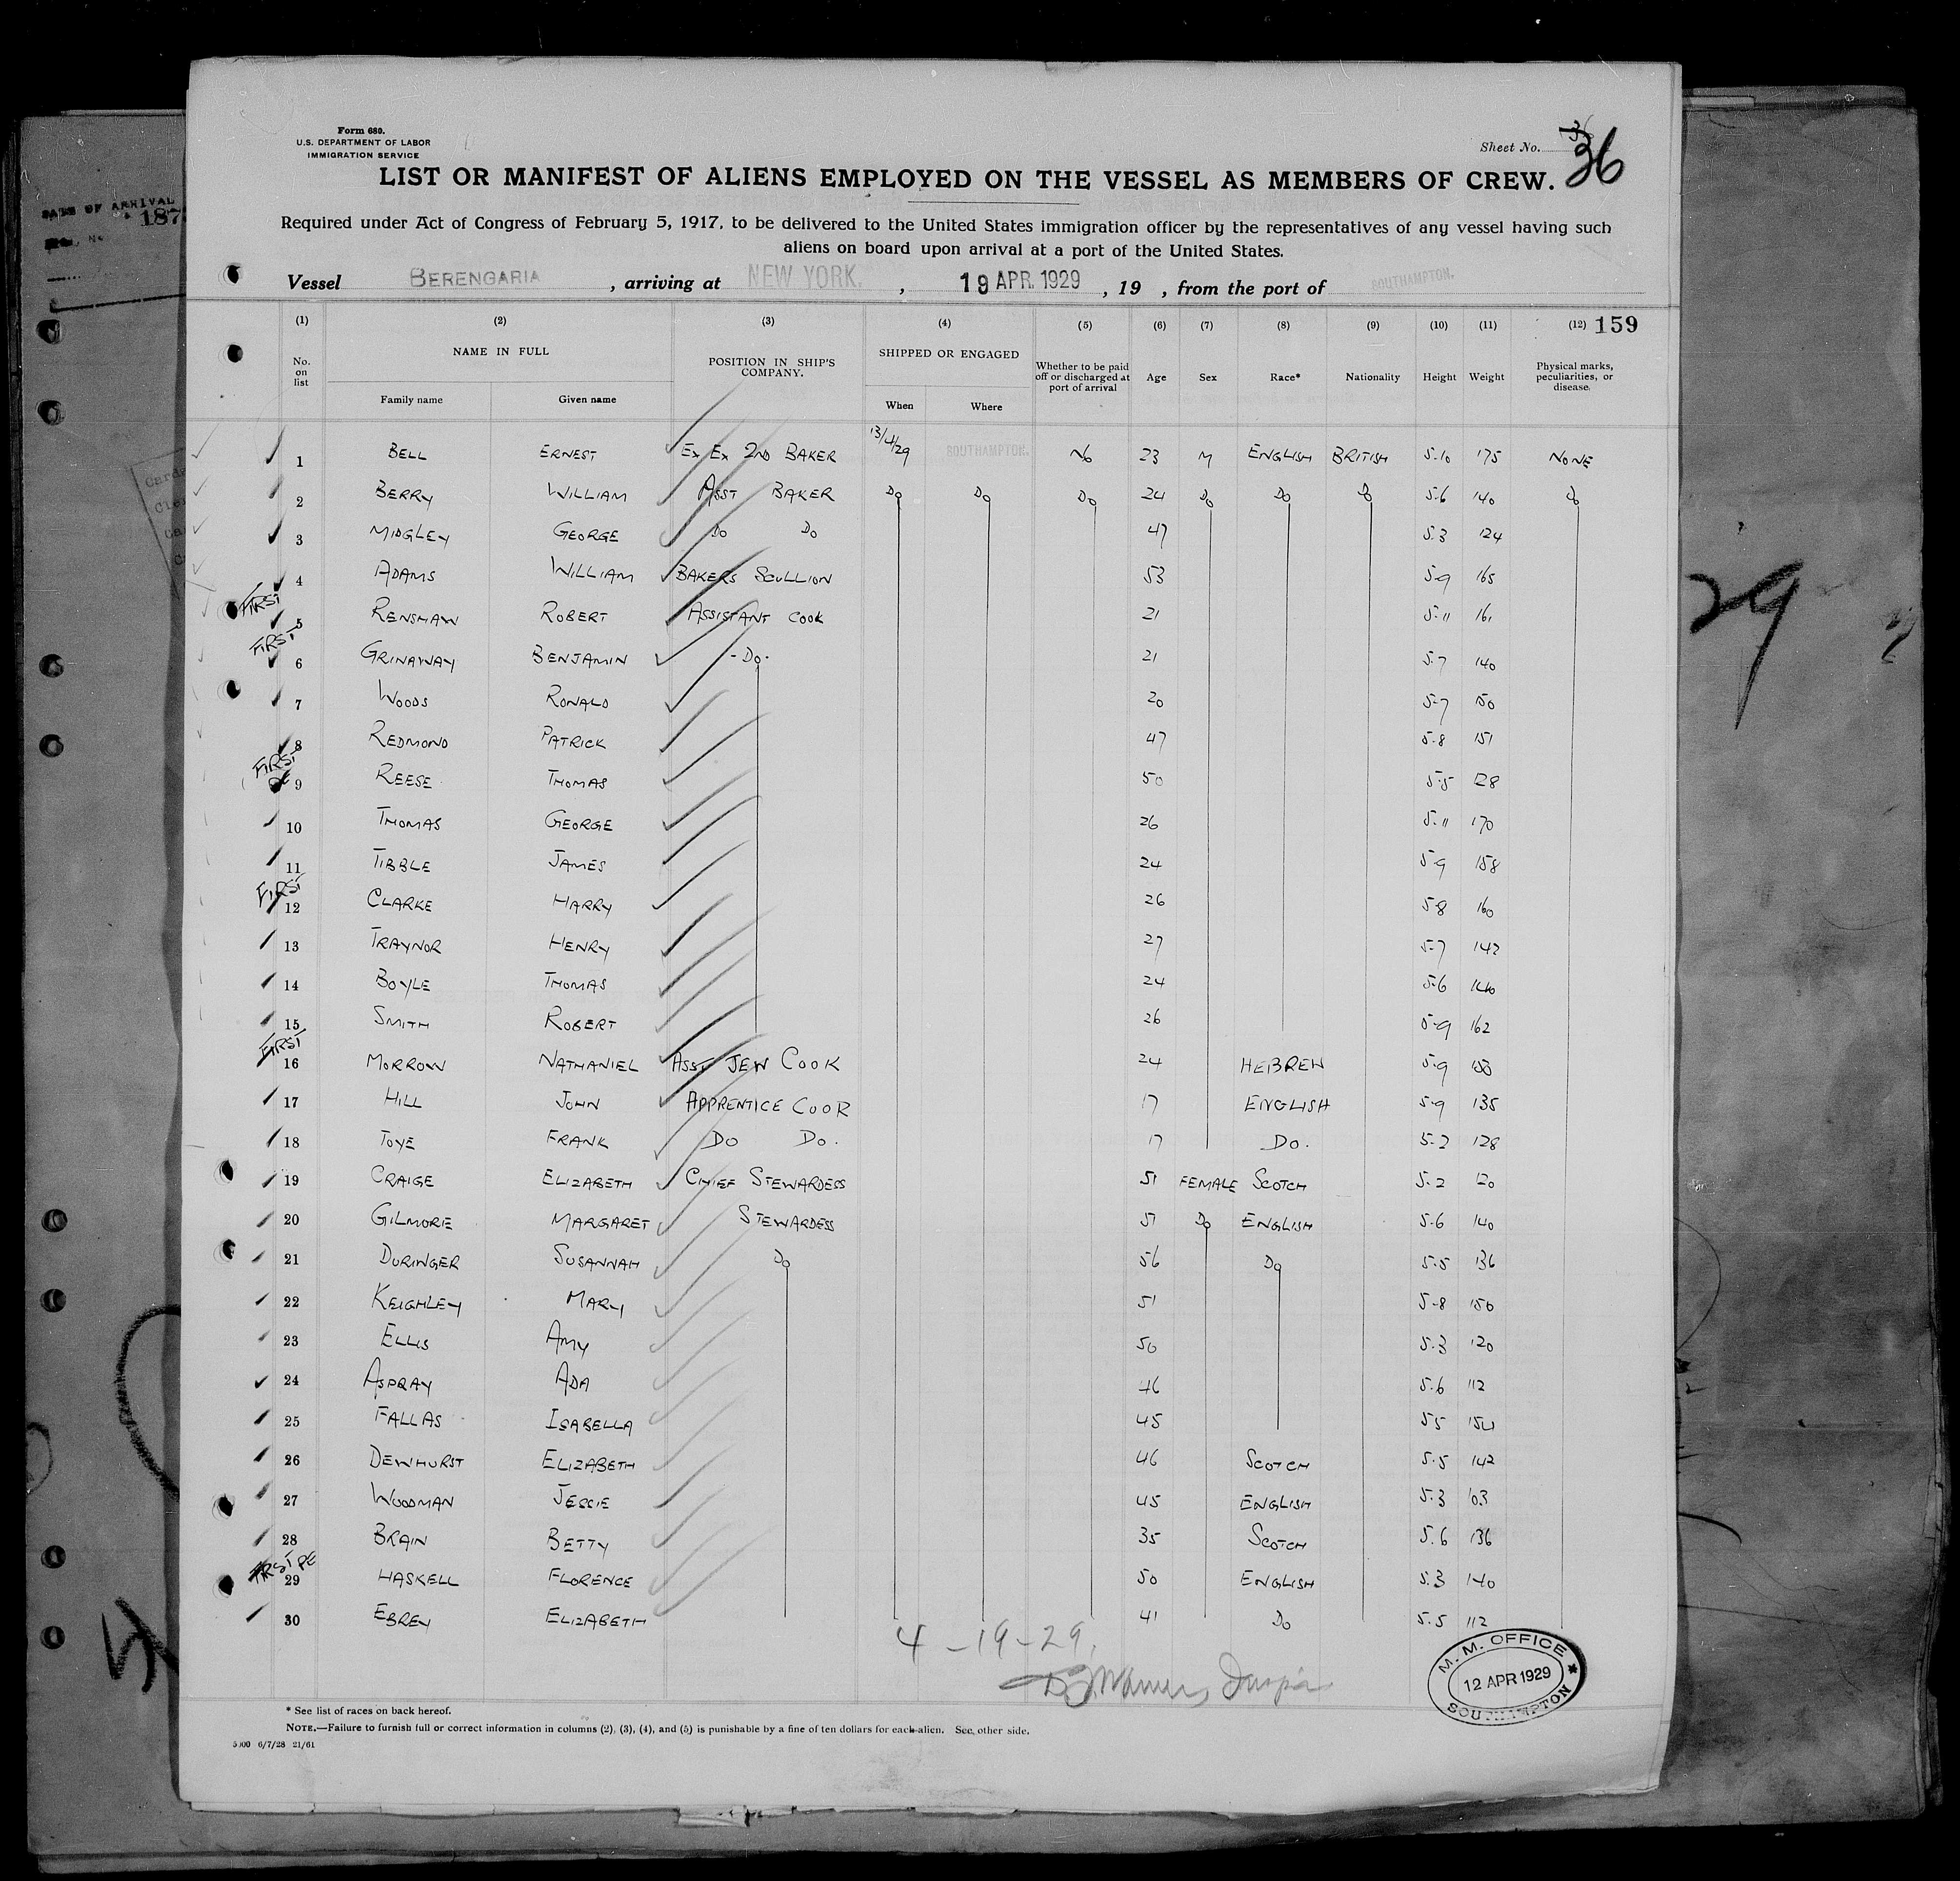 Form 680.
U.S. DEPARTMENT OF LABOR
IMMIGRATION SERVICE
Sheet No. 36
LIST OR MANIFEST OF ALIENS EMPLOYED ON THE VESSEL AS MEMBERS OF CREW.
Required under Act of Congress of February 5, 1917, to be delivered to the United States immigration officer by the representatives of any vessel having such
aliens on board upon arrival at a port of the United States.
DATE OF ARRIVAL
187
Vessel BERENGARIA , arriving at NEW YORK. , 19 APR. 1929 , 19 , from the port of SOUTHAMPTON.
(1) (2) (3) (4) (5) (6) (7) (8) (9) (10) (11) (12) 159
No. on list NAME IN FULL POSITION IN SHIP'S COMPANY. SHIPPED OR ENGAGED Whether to be paid off or discharged at port of arrival Age Sex Race* Nationality Height Weight Physical marks, peculiarities, or disease.
Family name Given name When Where
1 BELL ERNEST EX EX 2ND BAKER 13/4/29 SOUTHAMPTON. No 23 M ENGLISH BRITISH 5-10 175 NONE
2 BERRY WILLIAM ASST BAKER Do Do Do 24 Do Do Do 5-6 140 Do
3 MIDGLEY GEORGE Do Do 47 5-3 124
4 ADAMS WILLIAM BAKERS SCULLION 53 5-9 165
FIRST 5 RENSHAW ROBERT ASSISTANT COOK 21 5-11 161
FIRST 6 GRINAWAY BENJAMIN -Do- 21 5-7 140
7 WOODS RONALD 20 5-7 150
8 REDMOND PATRICK 47 5-8 151
FIRST 9 REESE THOMAS 50 5-5 128
10 THOMAS GEORGE 26 5-11 170
11 TIBBLE JAMES 24 5-9 158
FIRST 12 CLARKE HARRY 26 5-8 160
13 TRAYNOR HENRY 27 5-7 142
14 BOYLE THOMAS 24 5-6 140
15 SMITH ROBERT 26 5-9 162
FIRST 16 MORROW NATHANIEL ASST JEW COOK 24 HEBREW 5-9
17 HILL JOHN APPRENTICE COOK 17 ENGLISH 5-9 135
18 TOYE FRANK DO DO. 17 DO. 5-2 128
19 CRAIGE ELIZABETH CHIEF STEWARDESS 51 FEMALE SCOTCH 5-2 120
20 GILMORE MARGARET STEWARDESS 51 Do ENGLISH 5-6 140
21 DURINGER SUSANNAH Do 56 Do 5-5 136
22 KEIGHLEY MARY 51 5-8 150
23 ELLIS AMY 50 5-3 120
24 ASPRAY ADA 46 5-6 112
25 FALLAS ISABELLA 45 5-5 154
26 DEWHURST ELIZABETH 46 SCOTCH 5-5 142
27 WOODMAN JESSIE 45 ENGLISH 5-3 103
28 BRAIN BETTY 35 SCOTCH 5-6 136
FIRST 29 HASKELL FLORENCE 50 ENGLISH 5-3 140
30 EBREY ELIZABETH 41 Do 5-5 112
4-19-29.
M. M. OFFICE
12 APR 1929
SOUTHAMPTON
* See list of races on back hereof.
NOTE.—Failure to furnish full or correct information in columns (2), (3), (4), and (5) is punishable by a fine of ten dollars for each alien. See other side.
5000 6/7/28 21/61
29